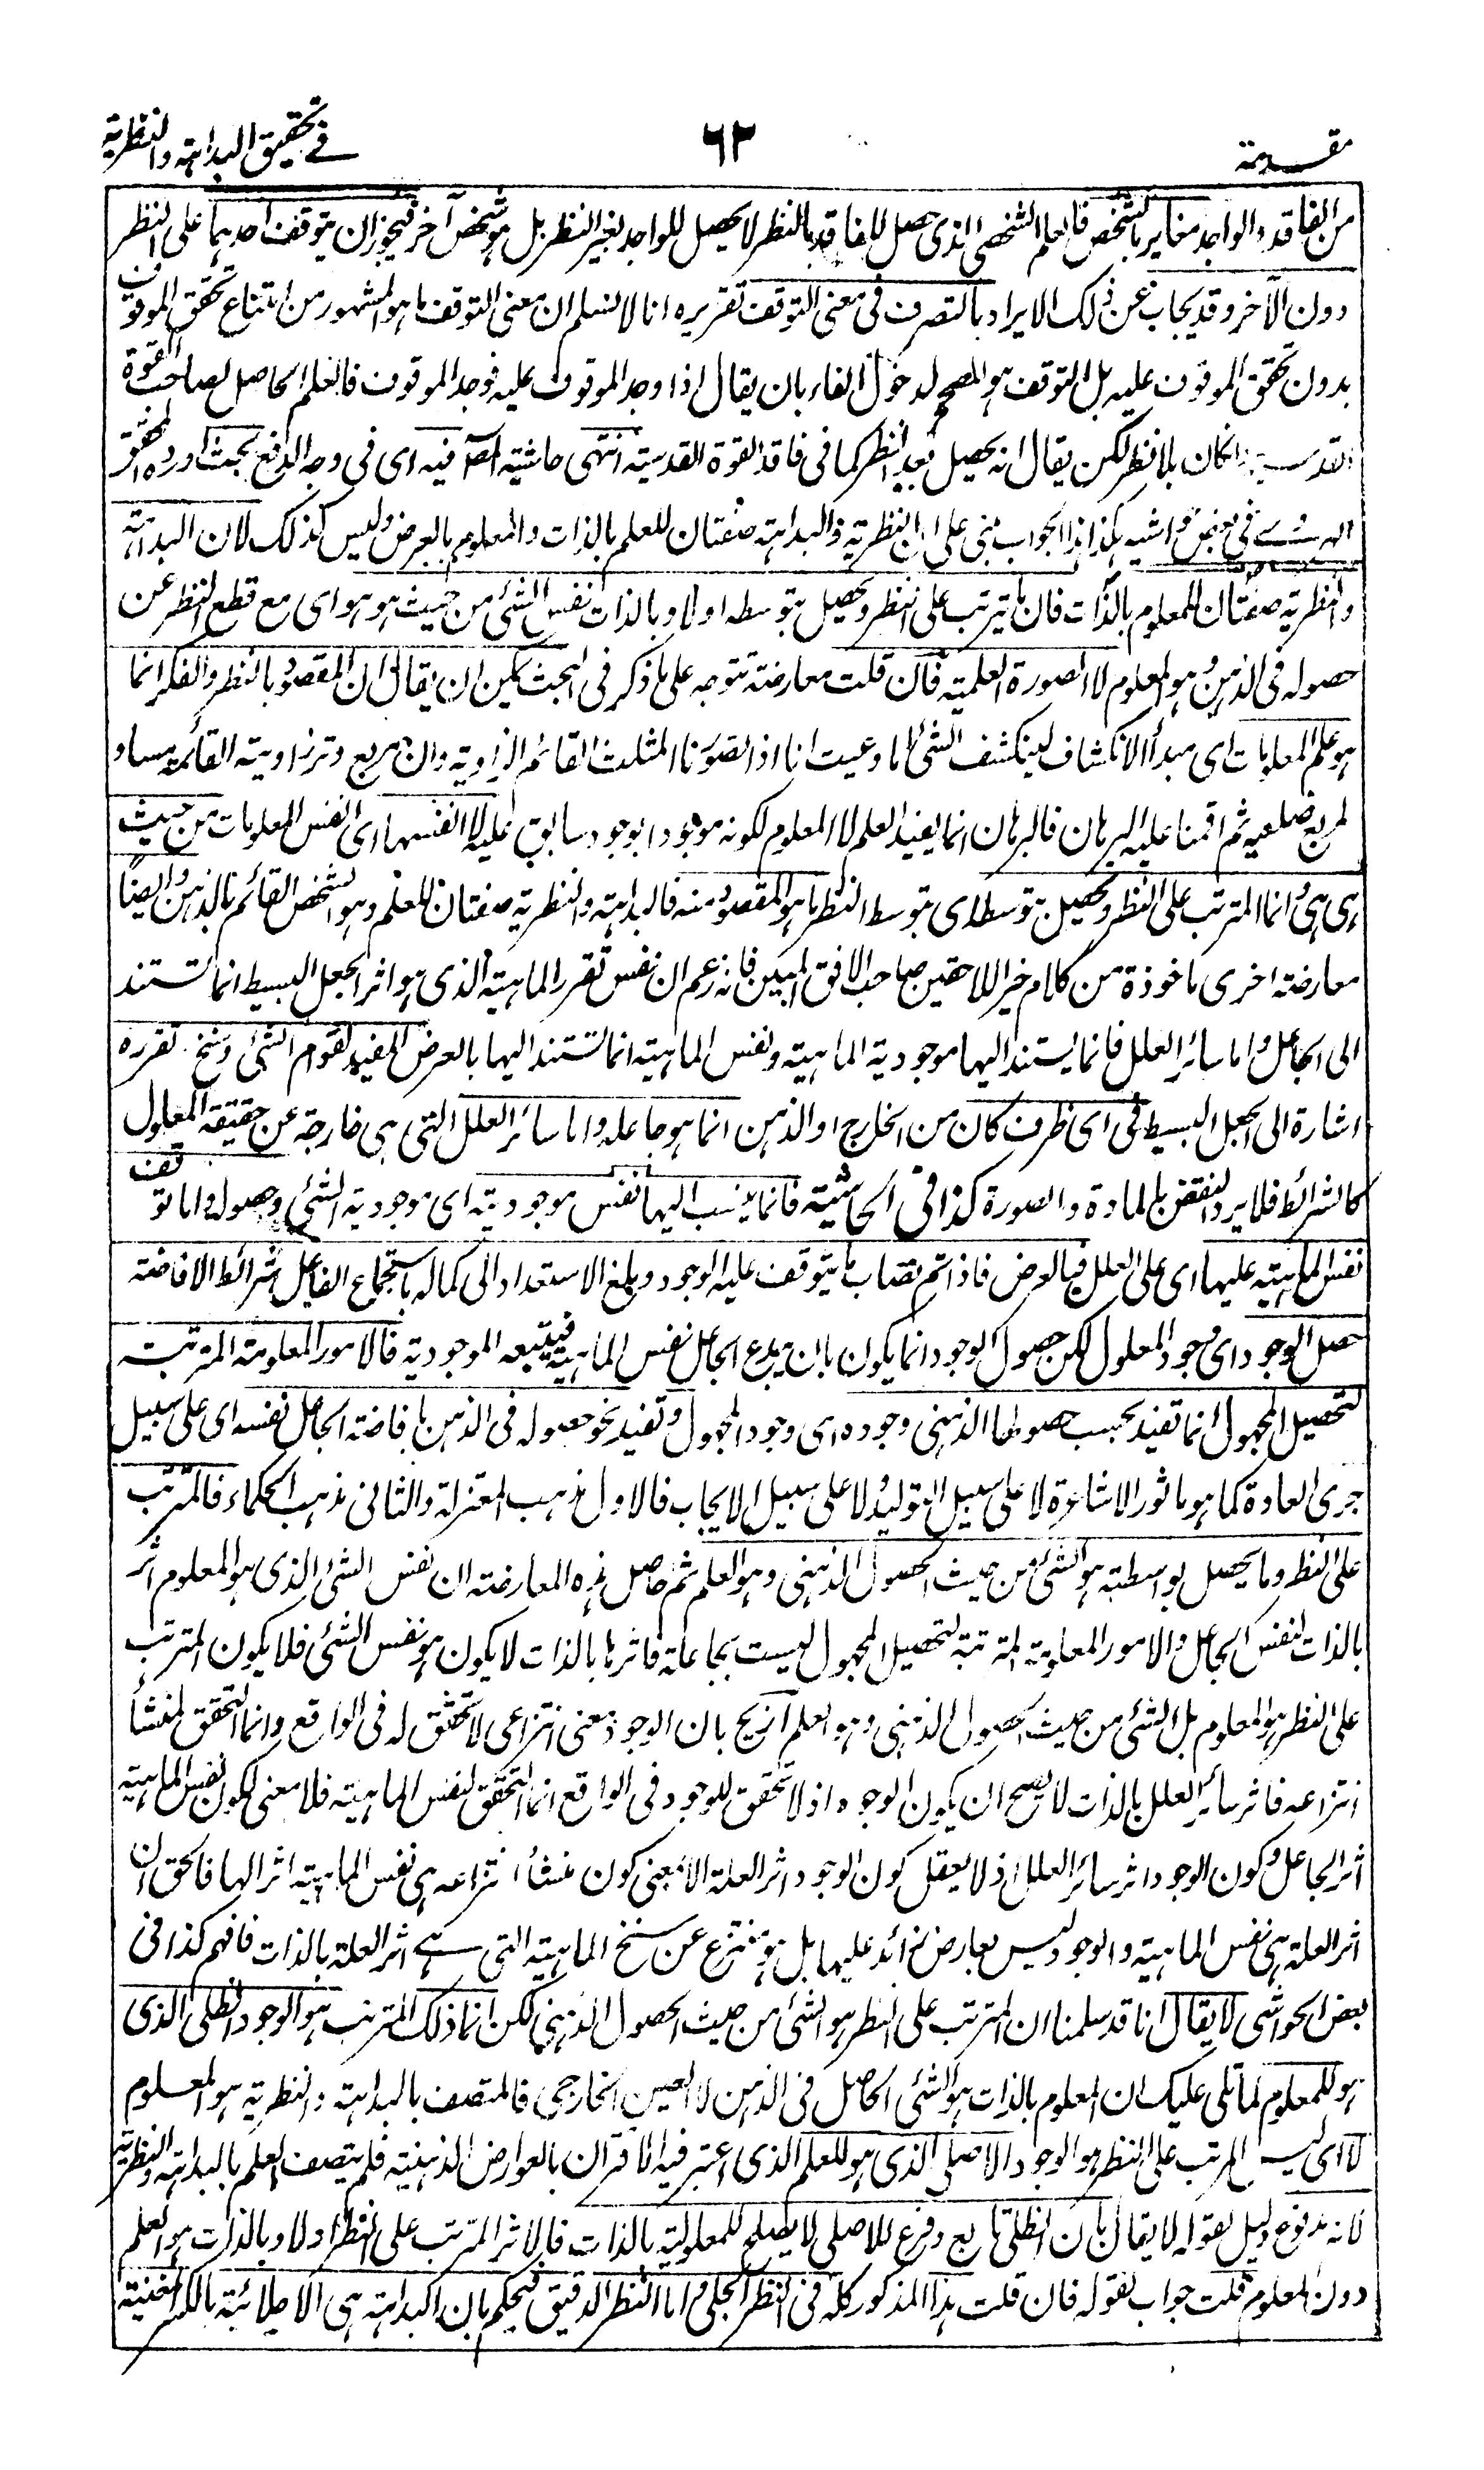 مقدمة
٦٣
في تحقيق البداهة والنظرية
من الفاقد والواجد مغاير بالشخص فالعلم الشخصي الذي حصل للفاقد بالنظر لا يحصل للواجد بغير النظر بل هو شخص آخر فيجوز ان يتوقف احدهما على النظر
دون الآخر وقد يجاب عن ذلك الايراد بالتصرف في معنى التوقف تقريره انا لا نسلم ان معنى التوقف ما هو المشهور من امتناع تحقق الموقوف
بدون تحقق الموقوف عليه بل التوقف هو المصحح لدخول الفاء بان يقال اذا وجد الموقوف عليه فوجد الموقوف فالعلم الحاصل لصاحب القوة
القدسية وان كان بلا نظر لكن يقال انه يحصل بعد النظر كما في فاقد القوة القدسية انتهى حاشية المصـ فيه اى في وجه الدفع بحث اورده المحقق
الهروي في بعض حواشيه هكذا هذا الجواب مبني على ان النظرية والبداهة صفتان للعلم بالذات والمعلوم بالعرض وليس كذلك لان البداهة
والنظرية صفتان للمعلوم بالذات فان ما يترتب على النظر ويحصل بتوسطه اولا وبالذات نفس الشئ من حيث هو هو اى مع قطع النظر عن
حصوله في الذهن وهو المعلوم لا الصورة العلمية فان قلت معارضة تتوجه على ما ذكر في البحث يمكن ان يقال ان المقصود بالنظر والفكر انما
هو علم المعلومات اى مبدأ الانكشاف لينكشف الشئ اما دعيت انا اذا تصورنا المثلث القائم الزاوية وان مربع وتر زاويته القائمة مساو
لمربع ضلعيه ثم اقمنا عليه البرهان فالبرهان انما يفيد العلم لا المعلوم لكونه موجودا بوجود سابق عليه لا انفسها اى انفس المعلومات من حيث
هي هي وانما المترتب على النظر ويحصل بتوسطه اى بتوسط النظر ما هو المقصود منه فالبداهة والنظرية صفتان للعلم وهو الشخص القائم بالذهن وايضاً
معارضة اخرى ماخوذة من كلام خير اللاحقين صاحب الافق المبين فانه زعم ان نفس تقرر الماهية الذي هو اثر الجعل البسيط انما تستند
الى الجاعل واما سائر العلل فانما يستند اليها موجودية الماهية ونفس الماهية انما تستند اليها بالعرض المفيد لقوام الشئ وسنخ تقرره
اشارة الى الجعل البسيط في اى ظرف كان من الخارج او الذهن انما هو جاعله واما سائر العلل التي هي خارجة عن حقيقة المعلول
كالشرائط فلا يرد النقض بالمادة والصورة كذا في الحاشية فانما ينسب اليها نفس موجوديته اى موجودية الشئ وحصوله واما توقف
نفس الماهية عليها اى على العلل فبالعرض فاذا تم نصاب ما يتوقف عليه الوجود وبلغ الاستعداد الى كماله باستجماع الفاعل شرائط الافاضة
حصل الوجود اى وجود المعلول لكن حصول الوجود انما يكون بان يبدع الجاعل نفس الماهية فيتبعه الموجودية فالامور المعلومة المترتبة
لتحصيل المجهول انما تفيد بحسب حصولها الذهني وجوده اى وجود المجهول وتفيد نحو حصوله في الذهن بافاضة الجاعل نفسه اى على سبيل
جرى العادة كما هو ماثور الاشاعرة لا على سبيل التوليد ولا على سبيل الايجاب فالاول مذهب المعتزلة والثاني مذهب الحكماء فالمترتب
على النظر وما يحصل بواسطته هو الشئ من حيث الحصول الذهني وهو العلم ثم حاصل هذه المعارضة ان نفس الشئ الذي هو المعلوم اثر
بالذات لنفس الجاعل والامور المعلومة المترتبة لتحصيل المجهول ليست بجاعلة فاثرها بالذات لا يكون هو نفس الشئ فلا يكون المترتب
على النظر هو المعلوم بل الشئ من حيث الحصول الذهني وهو العلم ازيح بان الوجود معنى انتزاعى لا تحقق له في الواقع وانما التحقق لمنشأ
انتزاعه فاثر سائر العلل بالذات لا يصح ان يكون الوجود اذ لا تحقق للوجود في الواقع انما التحقق لنفس الماهية فلا معنى لكون نفس الماهية
اثر الجاعل وكون الوجود اثر سائر العلل اذ لا يعقل كون الوجود اثر العلة الا بمعنى كون منشأ انتزاعه هي نفس الماهية اثر الها فالحق ان
اثر العلة هي نفس الماهية والوجود ليس بعارض زائد عليها بل هو منتزع عن سنخ الماهية التي هي اثر العلة بالذات فافهم كذا في
بعض الحواشي لا يقال انا قد سلمنا ان المترتب على النظر هو الشئ من حيث الحصول الذهني لكن انما ذلك المترتب هو الوجود الظلي الذي
هو للمعلوم لما تلى عليك ان المعلوم بالذات هو الشئ الحاصل في الذهن لا العين الخارجي فالمتصف بالبداهة والنظرية هو المعلوم
لا اى ليس المرتب على النظر هو الوجود الاصلي الذي هو للعلم الذي اعتبر فيه الاقتران بالعوارض الذهنية فلم يتصف العلم بالبداهة والنظرية
لانه مدفوع دليل لقوله لا يقال بان الظلي تابع وفرع للاصلي لا يصلح للمعلولية بالذات فالاثر المترتب على النظر اولا وبالذات هو العلم
دون المعلوم قلت جواب لقوله فان قلت هذا المذكور كله في النظر الجلي واما النظر الدقيق فيحكم بان البداهة هي الاجلائية بالكسر المغنية